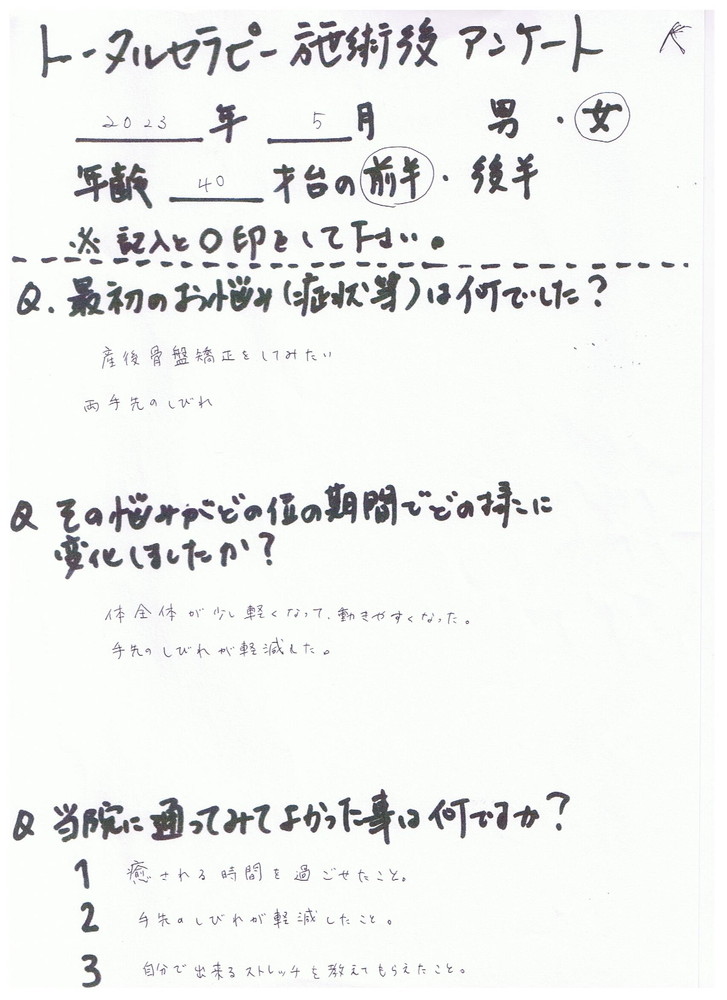 トータルセラピー施術後 アンケート
2023年 5月 男・女
年齢 40 才台の 前半・後半
※ 記入と〇印をして下さい。
Q. 最初のお悩み(症状等)は何でした?
産後骨盤矯正をしてみたい
両手先のしびれ
Q その悩みがどの位の期間でどの様に
変化しましたか?
体全体が少し軽くなって、動きやすくなった。
手先のしびれが軽減した。
Q 当院に通ってみてよかった事は何ですか?
1 癒される時間を過ごせたこと。
2 手先のしびれが軽減したこと。
3 自分で出来るストレッチを教えてもらえたこと。